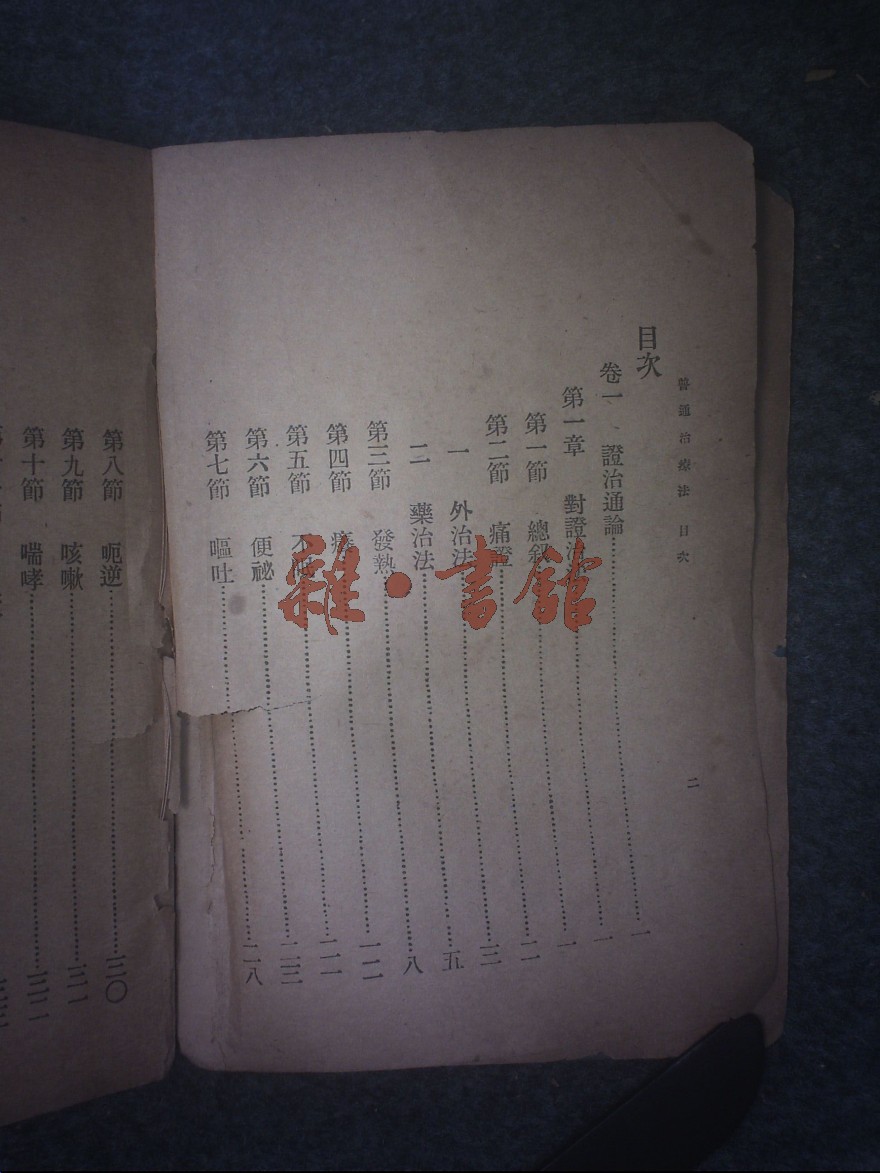 普通治療法 目次 二
目次
卷一 證治通論……一
第一章 對證治……一
第一節 總……一
第二節 痛證……二
一 外治法……三
二 藥治法……五
第三節 發熱……八
第四節……一二
第五節 不……二一
第六節 便祕……二三
第七節 嘔吐……二八
第八節 呃逆……三〇
第九節 咳嗽……三一
第十節 喘哮……三二
雜·書館